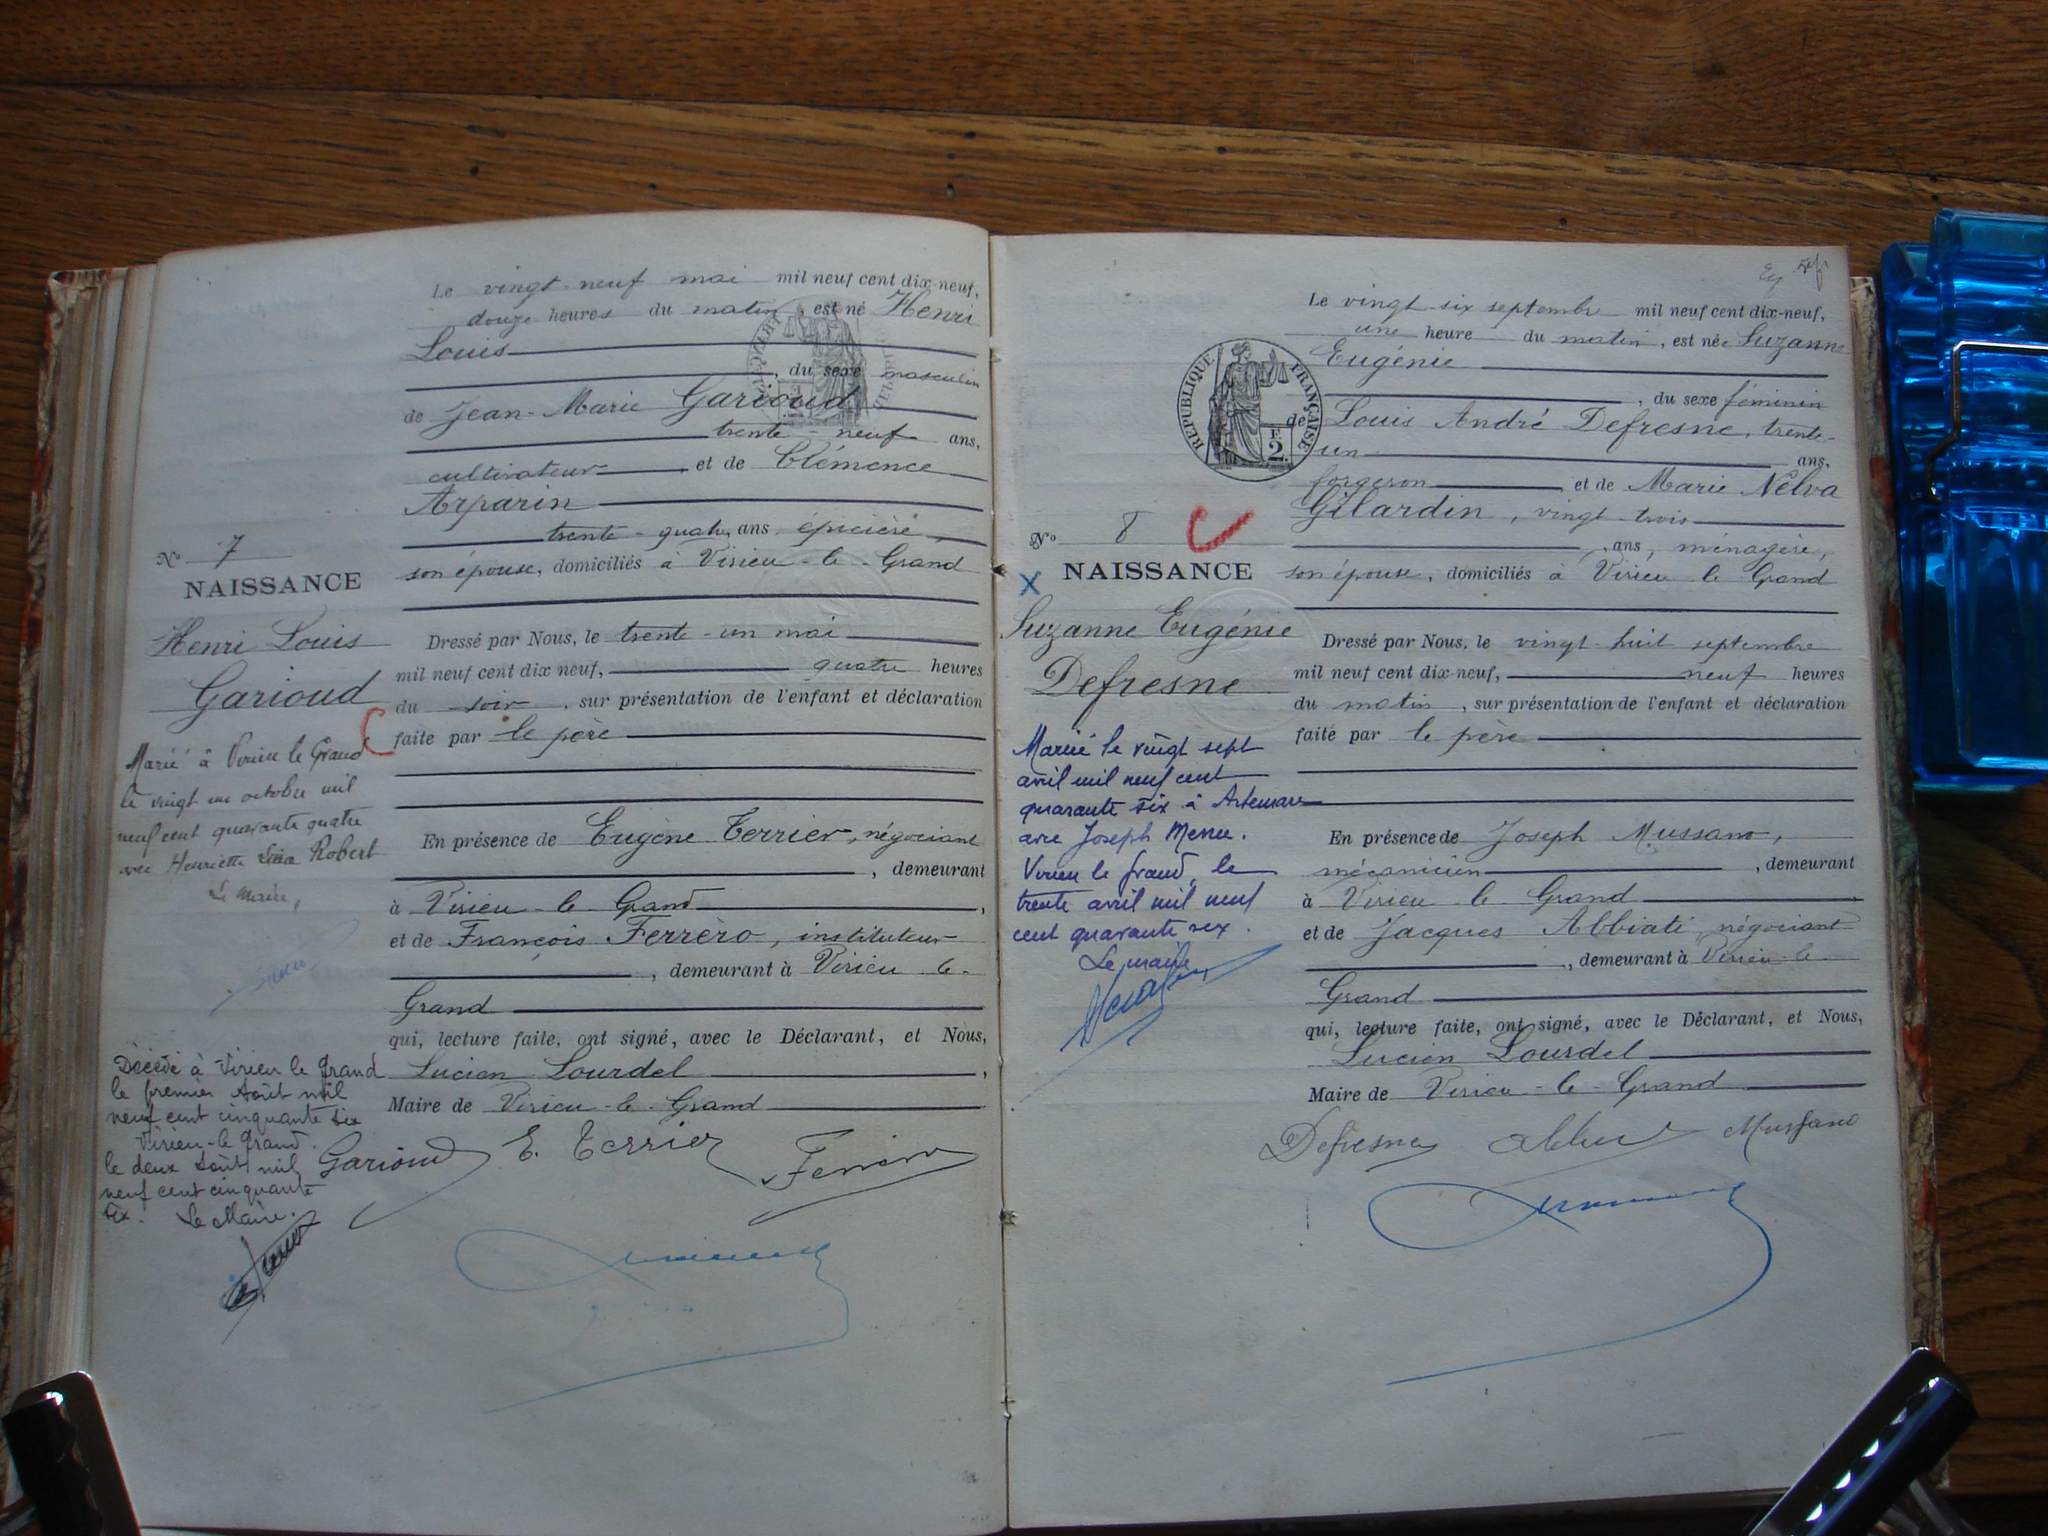 Le vingt-neuf mai mil neuf cent dix-neuf,
douze heures du matin, est né Henri
Louis
, du sexe masculin
de Jean-Marie Garioud
trente-neuf ans,
cultivateur et de Clémence
Arparin
trente-quatre ans, épicière,
son épouse, domiciliés à Virieu-le-Grand
Nº 7
NAISSANCE
Henri Louis
Garioud
Marié à Virieu le Grand
le vingt un octobre mil
neuf cent quarante quatre
avec Henriette Robert
Le Maire,
Décédé à Virieu le Grand
le premier Août mil
neuf cent cinquante six
Virieu-le Grand.
le deux Août mil
neuf cent cinquante
six. Le Maire.
Dressé par Nous, le trente-un mai
mil neuf cent dix neuf, quatre heures
du soir, sur présentation de l'enfant et déclaration
faite par le père
En présence de Eugène Terrier, négociant
, demeurant
à Virieu-le Grand,
et de François Ferrero, instituteur
, demeurant à Virieu-le-
Grand
qui, lecture faite, ont signé, avec le Déclarant, et Nous,
Lucien Lourdel,
Maire de Virieu-le-Grand
Garioud E. Terrier Ferrero
Le vingt-six septembre mil neuf cent dix-neuf,
une heure du matin, est née Suzanne
Eugénie
, du sexe féminin
de Louis André Defresne, trente-
un ans,
forgeron et de Marie Nelva
Gilardin, vingt-trois
, ans, ménagère,
son épouse, domiciliés à Virieu le Grand
RÉPUBLIQUE FRANÇAISE
F
2.
Nº 8
X NAISSANCE
Suzanne Eugénie
Defresne
Marié le vingt sept
avril mil neuf cent
quarante six à Artemare
avec Joseph
Virieu le Grand, le
trente avril mil neuf
cent quarante six.
Le maire
Dressé par Nous, le vingt-huit septembre
mil neuf cent dix-neuf, neuf heures
du matin, sur présentation de l'enfant et déclaration
faite par le père
En présence de Joseph Mussano,
mécanicien, demeurant
à Virieu le Grand
et de Jacques Abbiati, négociant
, demeurant à Virieu-le-
Grand
qui, lecture faite, ont signé, avec le Déclarant, et Nous,
Lucien Lourdel
Maire de Virieu-le-Grand
Defresne Mussano